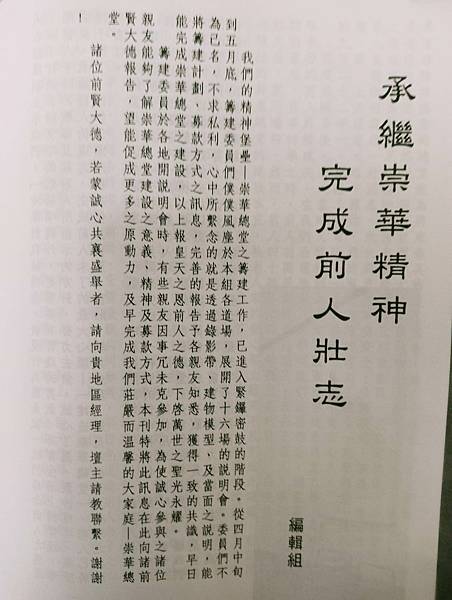 承繼崇華精神
完成前人壯志
編輯組
我們的精神堡壘─崇華總堂之籌建工作，已進入緊鑼密鼓的階段。從四月中旬
到五月底，籌建委員們僕僕風塵於本組各道場，展開了十六場的說明會。委員們不
為己名，不求私利，心中所繫念的就是透過錄影帶、建物模型、及當面之說明，能
將籌建計劃、募款方式之訊息，完善的報告予各親友知悉，獲得一致的共識，早日
能完成崇華總堂之建設，以上報皇天之恩前人之德，下啓萬世之聖光永耀。
籌建委員於各地開說明會時，有些親友因事冗未克參加，為使誠心參與之諸位
親友能夠了解崇華總堂建設之意義、精神及募款方式，本刊特將此訊息在此向諸前
賢大德報告，望能促成更多之原動力，及早完成我們莊嚴而溫馨的大家庭─崇華總
堂。
諸位前賢大德，若蒙誠心共襄盛舉者，請向貴地區經理，壇主請教聯繫。謝謝
！